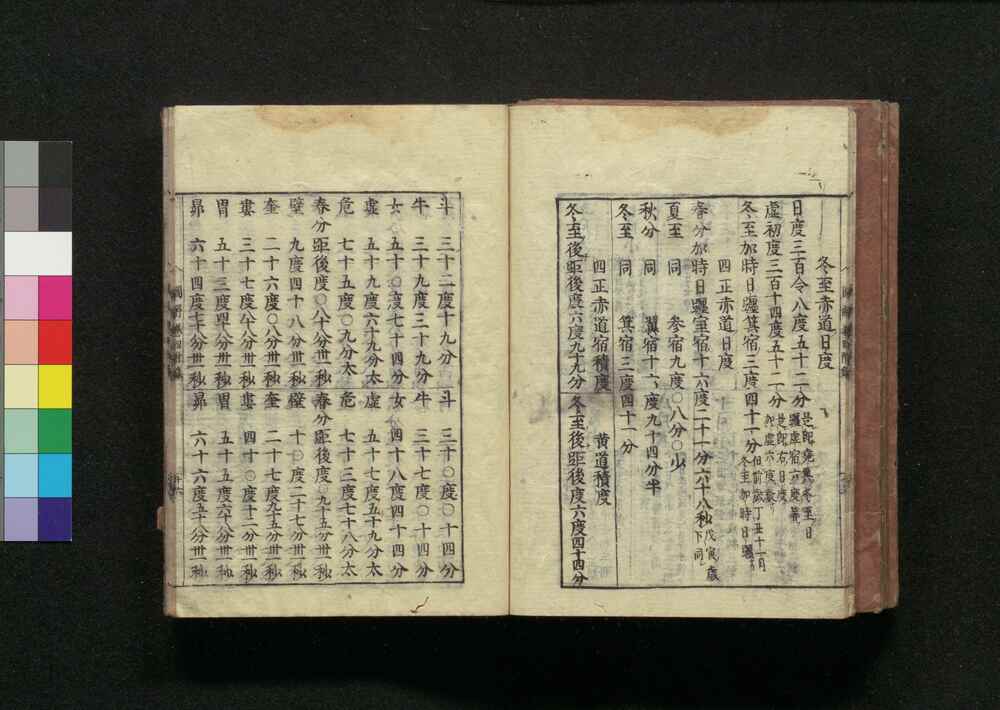 冬至赤道日度
日度三百令八度五十二分
虚初度三百十四度五十二分
冬至加時日躔箕宿三度四十一分
四正赤道日度
春分加時日躔室宿十六度二十一分六十八秒戊寅歳下同
夏至 同 参宿九度〇八分〇少
秋分 同 翼宿十六度九十四分半
冬至 同 箕宿三度四十一分
四正赤道宿積度 黄道積度
冬至後距後度六度九十九分 冬至後距後度六度四十四分
斗 三十二度十九分 斗 三十〇度〇十四分
牛 三十九度三十九分 牛 三十七度〇十四分
女 五十〇度七十四分 女 四十八度四十四分
虚 五十九度六十九分太 虚 五十七度五十九分太
危 七十五度〇九分太 危 七十三度七十八分太
春分距後度〇八十分卅一秒 春分距後度〇九十五分卅一秒
壁 九度四十八分卅一秒 壁 十〇度二十七分卅一秒
奎 二十六度〇八分卅一秒 奎 二十七度九十五分卅一秒
婁 三十七度八十八分卅一秒 婁 四十〇度十二分卅一秒
胃 五十三度四十八分卅一秒 胃 五十五度六十八分卅一秒
昴 六十四度七十八分卅一秒 昴 六十六度五十八分卅一秒